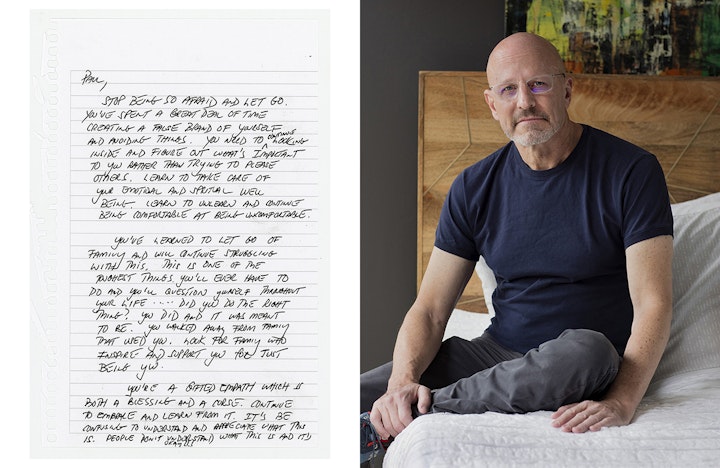 PAUL,
STOP BEING SO AFRAID AND LET GO.
YOU'VE SPENT A GREAT DEAL OF TIME
CREATING A FALSE BRAND OF YOURSELF
AND AVOIDING THINGS. YOU NEED TO CONTINUE LOOKING
INSIDE AND FIGURE OUT WHAT'S IMPORTANT
TO YOU RATHER THAN TRYING TO PLEASE
OTHERS. LEARN TO TAKE CARE OF
YOUR EMOTIONAL AND SPIRITUAL WELL
BEING. LEARN TO UNLEARN AND CONTINUE
BEING COMFORTABLE AT BEING UNCOMFORTABLE.
YOU'VE LEARNED TO LET GO OF
FAMILY AND WILL CONTINUE STRUGGLING
WITH THIS. THIS IS ONE OF THE
TOUGHEST THINGS YOU'LL EVER HAVE TO
DO AND YOU'LL QUESTION YOURSELF THROUGHOUT
YOUR LIFE ..... DID YOU DO THE RIGHT
THING? YOU DID AND IT WAS MEANT
TO BE. YOU WALKED AWAY FROM FAMILY
THAT USED YOU. LOOK FOR FAMILY WHO
INSPIRE AND SUPPORT YOU FOR JUST
BEING YOU.
YOU'RE A GIFTED EMPATH WHICH IS
BOTH A BLESSING AND A CURSE. CONTINUE
TO EMBRACE AND LEARN FROM IT. IT'S BE
CONFUSING TO UNDERSTAND AND APPRECIATE WHAT THIS
IS. PEOPLE DON'T UNDERSTAND WHAT THIS IS AND IT'S